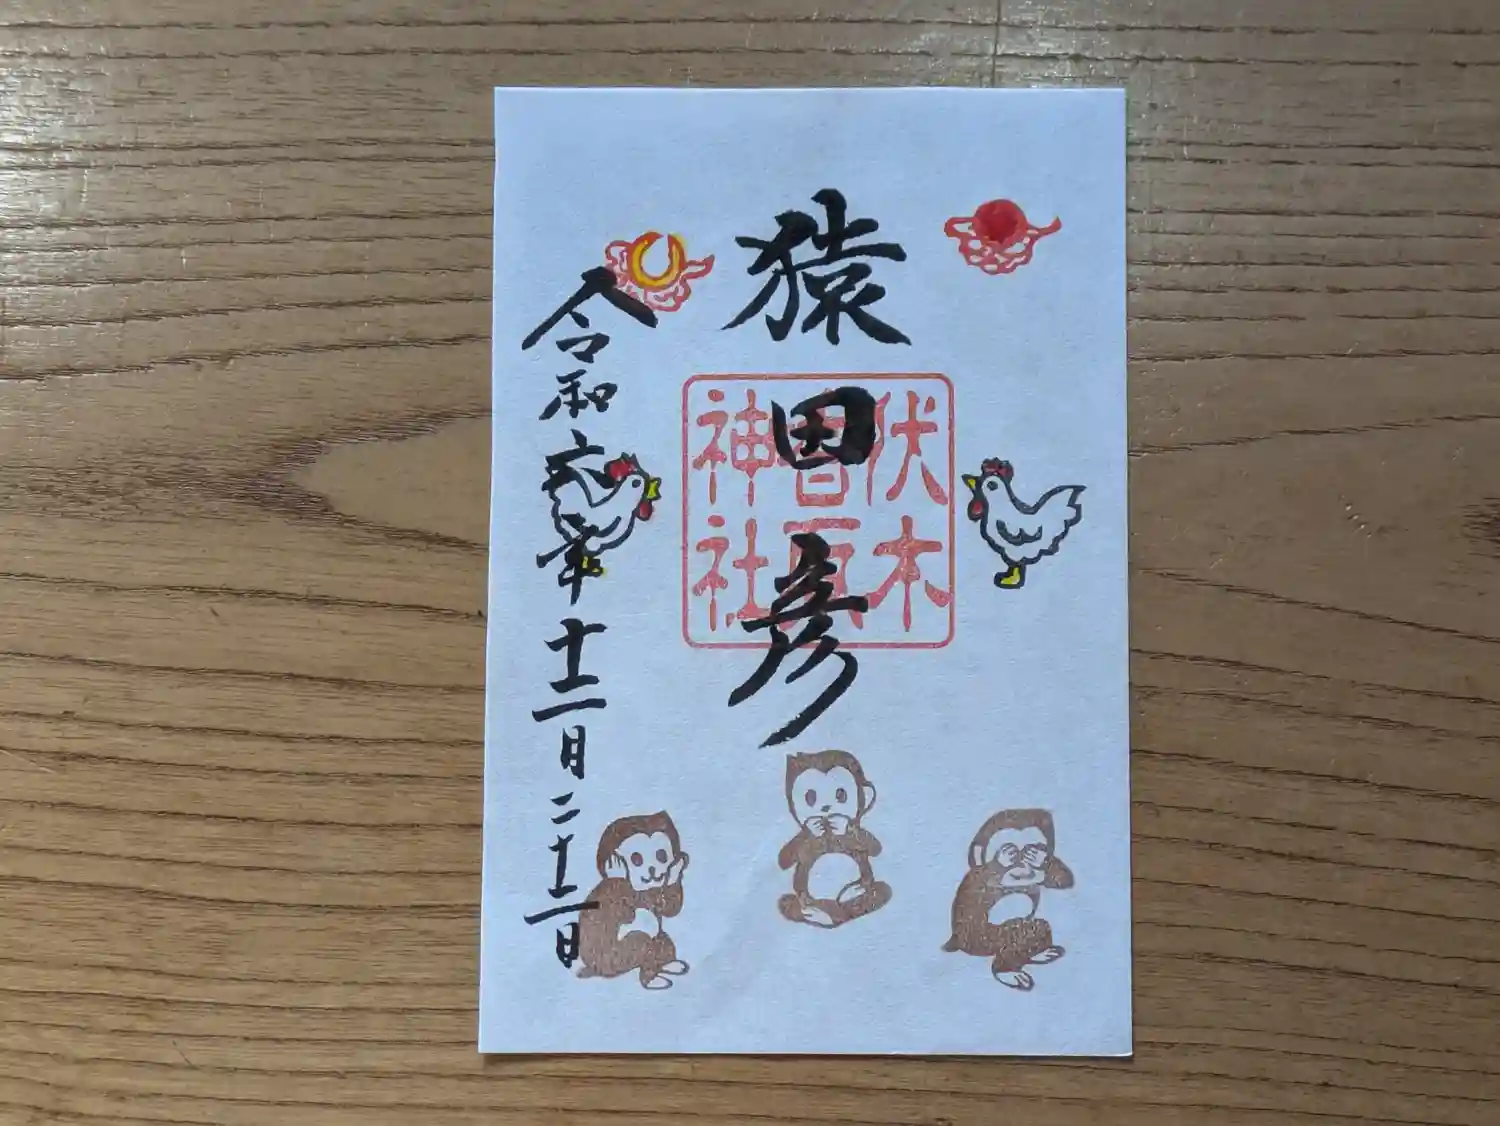 猿田彦
伏木香取神社
令和六年十二月二十二日